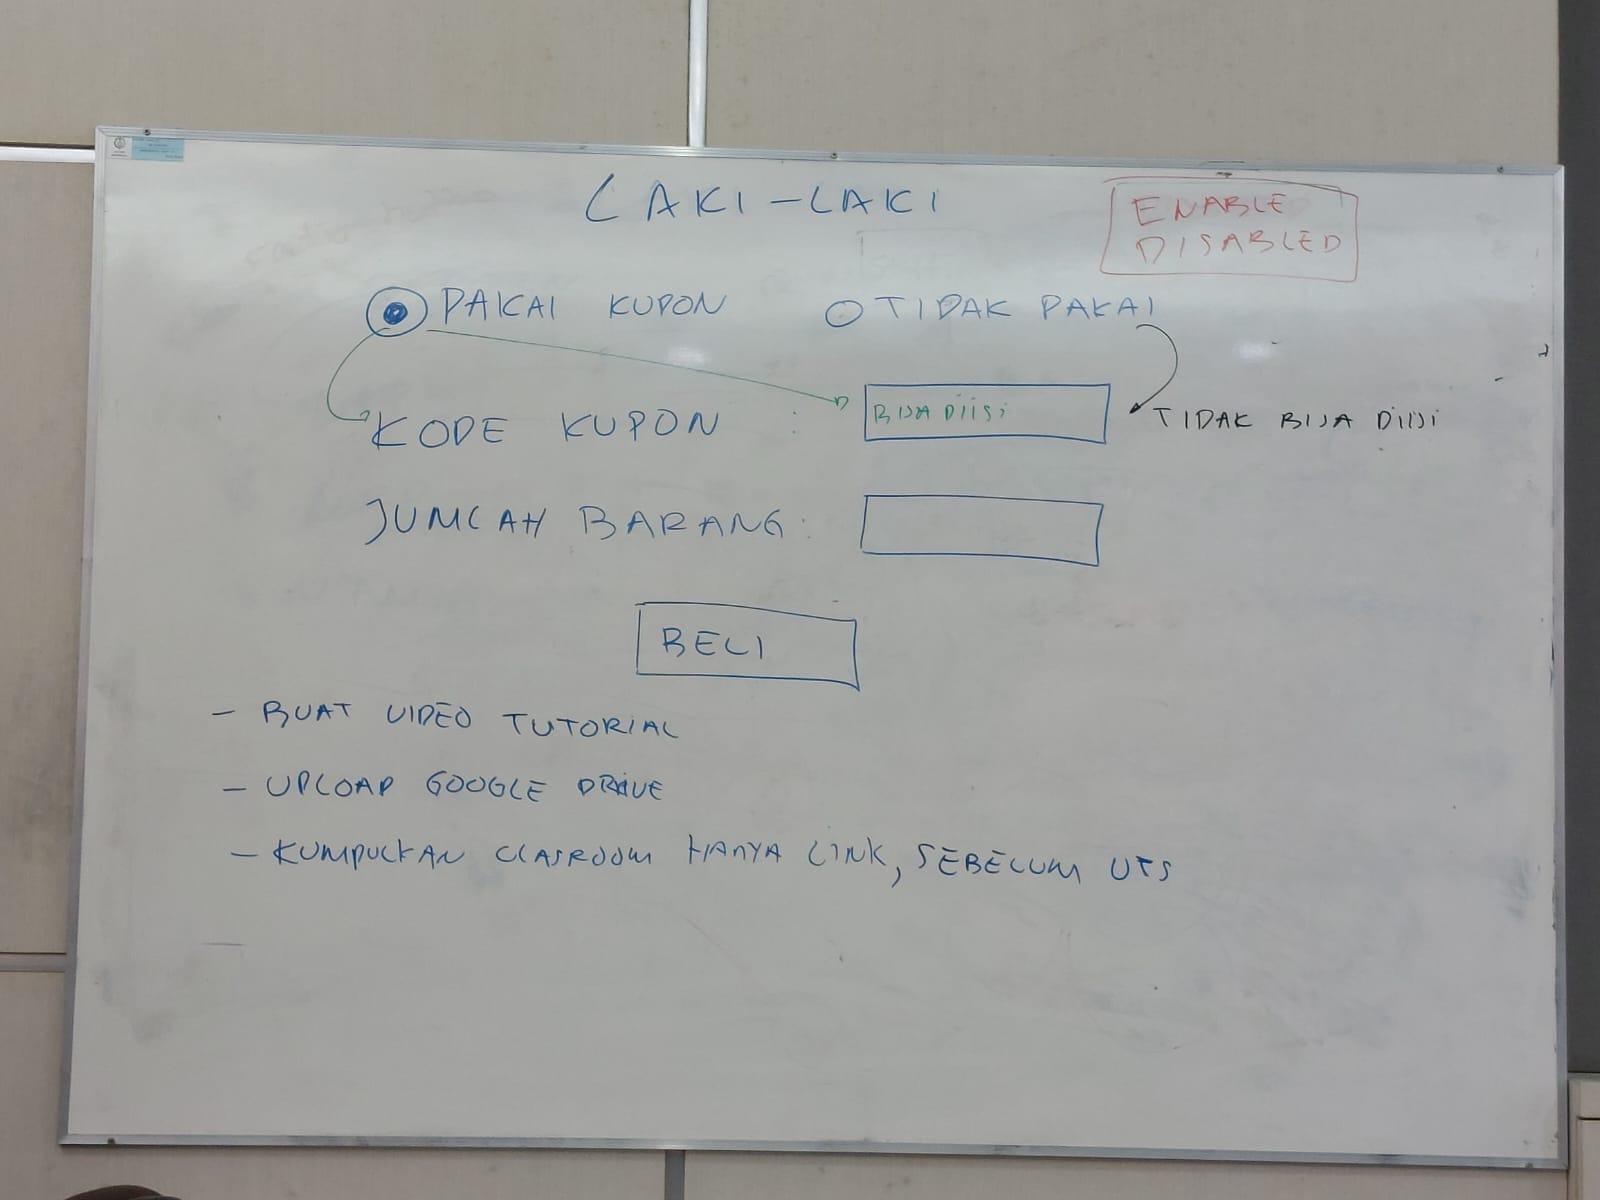 LAKI-LAKI
ENABLE
DISABLED
PAKAI KUPON
TIDAK PAKAI
KODE KUPON :
BISA DIISI
TIDAK BISA DIISI
JUMLAH BARANG :
BELI
- BUAT VIDEO TUTORIAL
- UPLOAD GOOGLE DRIVE
- KUMPULKAN CLASROOM HANYA LINK, SEBELUM UTS